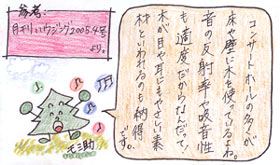 参考:
月刊ハウジング2005.4号
より。
コンサートホールの多くが
床や壁に木を使ってるよね。
音の反射率や吸音性
も適度だからなんだって!
木が目や耳にもやさしい素
材といわれるのも納得
です。